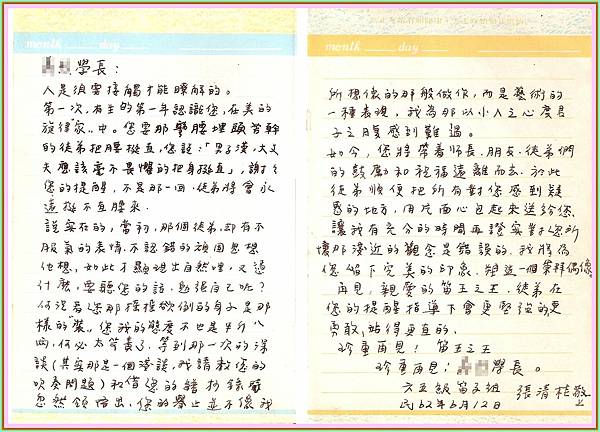 month      day
學長：
人是很需要接觸才能瞭解的。
第一次，有生的第一年認識您，在美的
旋律家"中。您要那彎腰埋頭苦幹
的徒弟把腰挺直，您說：「男子漢，大丈
夫應該毫不畏懼的把身挺直」，謝謝
您的提醒，不是那一回，徒弟將會永
遠挺不直腰來。
說實在的，當初，那個徒弟，卻有不
服氣的表情，不認錯的頑固思想
他想，如此才顯現出自然哩，又這
什麼，要聽您的話，勉強自己呢？
何況看您那搖搖欲倒的身子是那
樣的"裝"，您我的態度不也是半斤八
兩，何必太苛責了，等到那一次的深
談（其實那是一個淺談，我請教您的
吹奏問題）和借您的譜抄錄
忽然領悟出，您的舉止並不像我
month      day
所想像的那般做作，而是藝術的
一種表現，我為那以小人之心度君
子之腹感到難過。
如今，您將帶着師長、朋友、徒弟們
的鼓勵和祝福遠離而去，於此
徒弟順便把所有對您感到疑
惑的地方，用片面心包起來送給您，
讓我有充分的時間再證實對您所
懷那淺近的觀念是錯誤的，我將為
您留下完美的印象，塑造一個崇拜偶像
再見，親愛的笛王之王，徒弟在
您的提醒指導下會更堅強的更
勇敢，站得更直的。
珍重再見！笛王之王
珍重再見！學長。
六五級笛支班
張清桂敬上
民62年6月12日